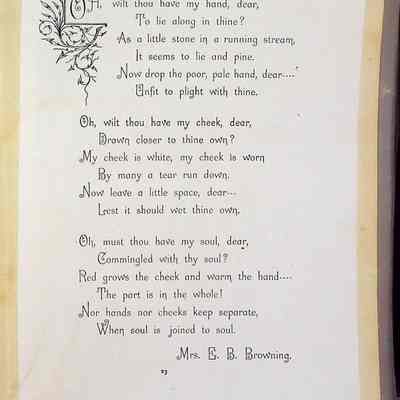 OH, wilt thou have my hand, dear,
To lie along in thine?
As a little stone in a running stream,
It seems to lie and pine.
Now drop the poor, pale hand, dear----
Unfit to plight with thine.
Oh, wilt thou have my cheek, dear,
Drawn closer to thine own?
My cheek is white, my cheek is worn
By many a tear run down.
Now leave a little space, dear---
Lest it should wet thine own.
Oh, must thou have my soul, dear,
Commingled with thy soul?
Red grows the cheek and warm the hand----
The part is in the whole!
Nor hands nor cheeks keep separate,
When soul is joined to soul.
Mrs. E. B. Browning.
23